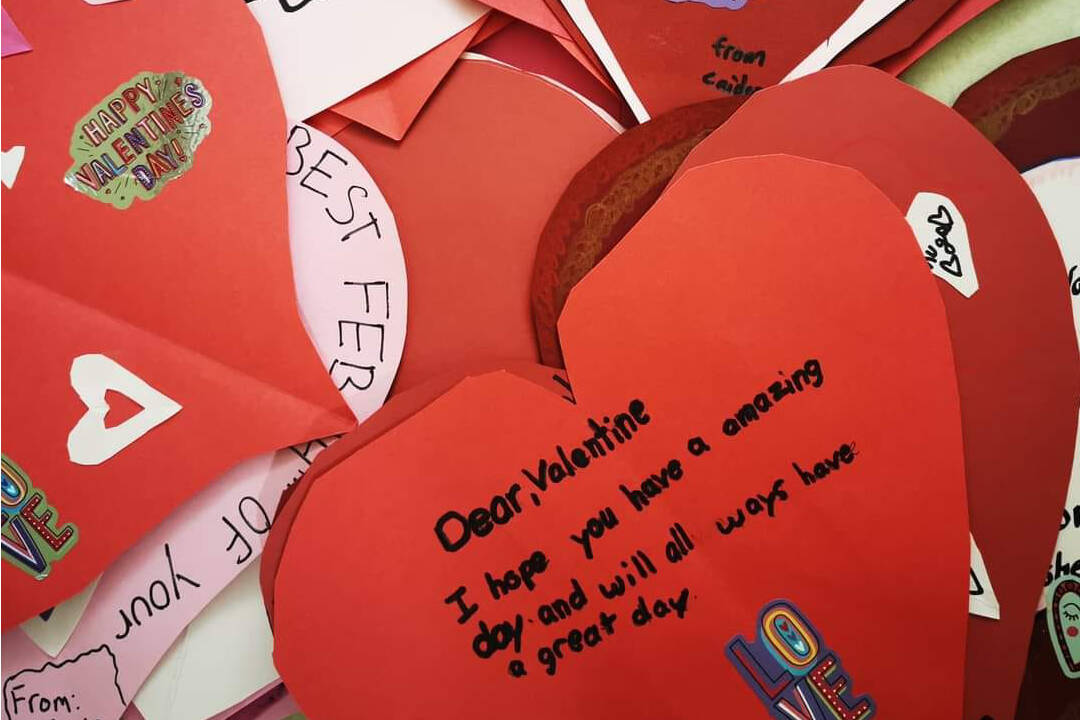 from
HAPPY
VALENTINES
DAY!
BEST FEB
Dear, Valentine
I hope you have a amazing
day and will all ways have
a great day.
LOVE
OF your
From: